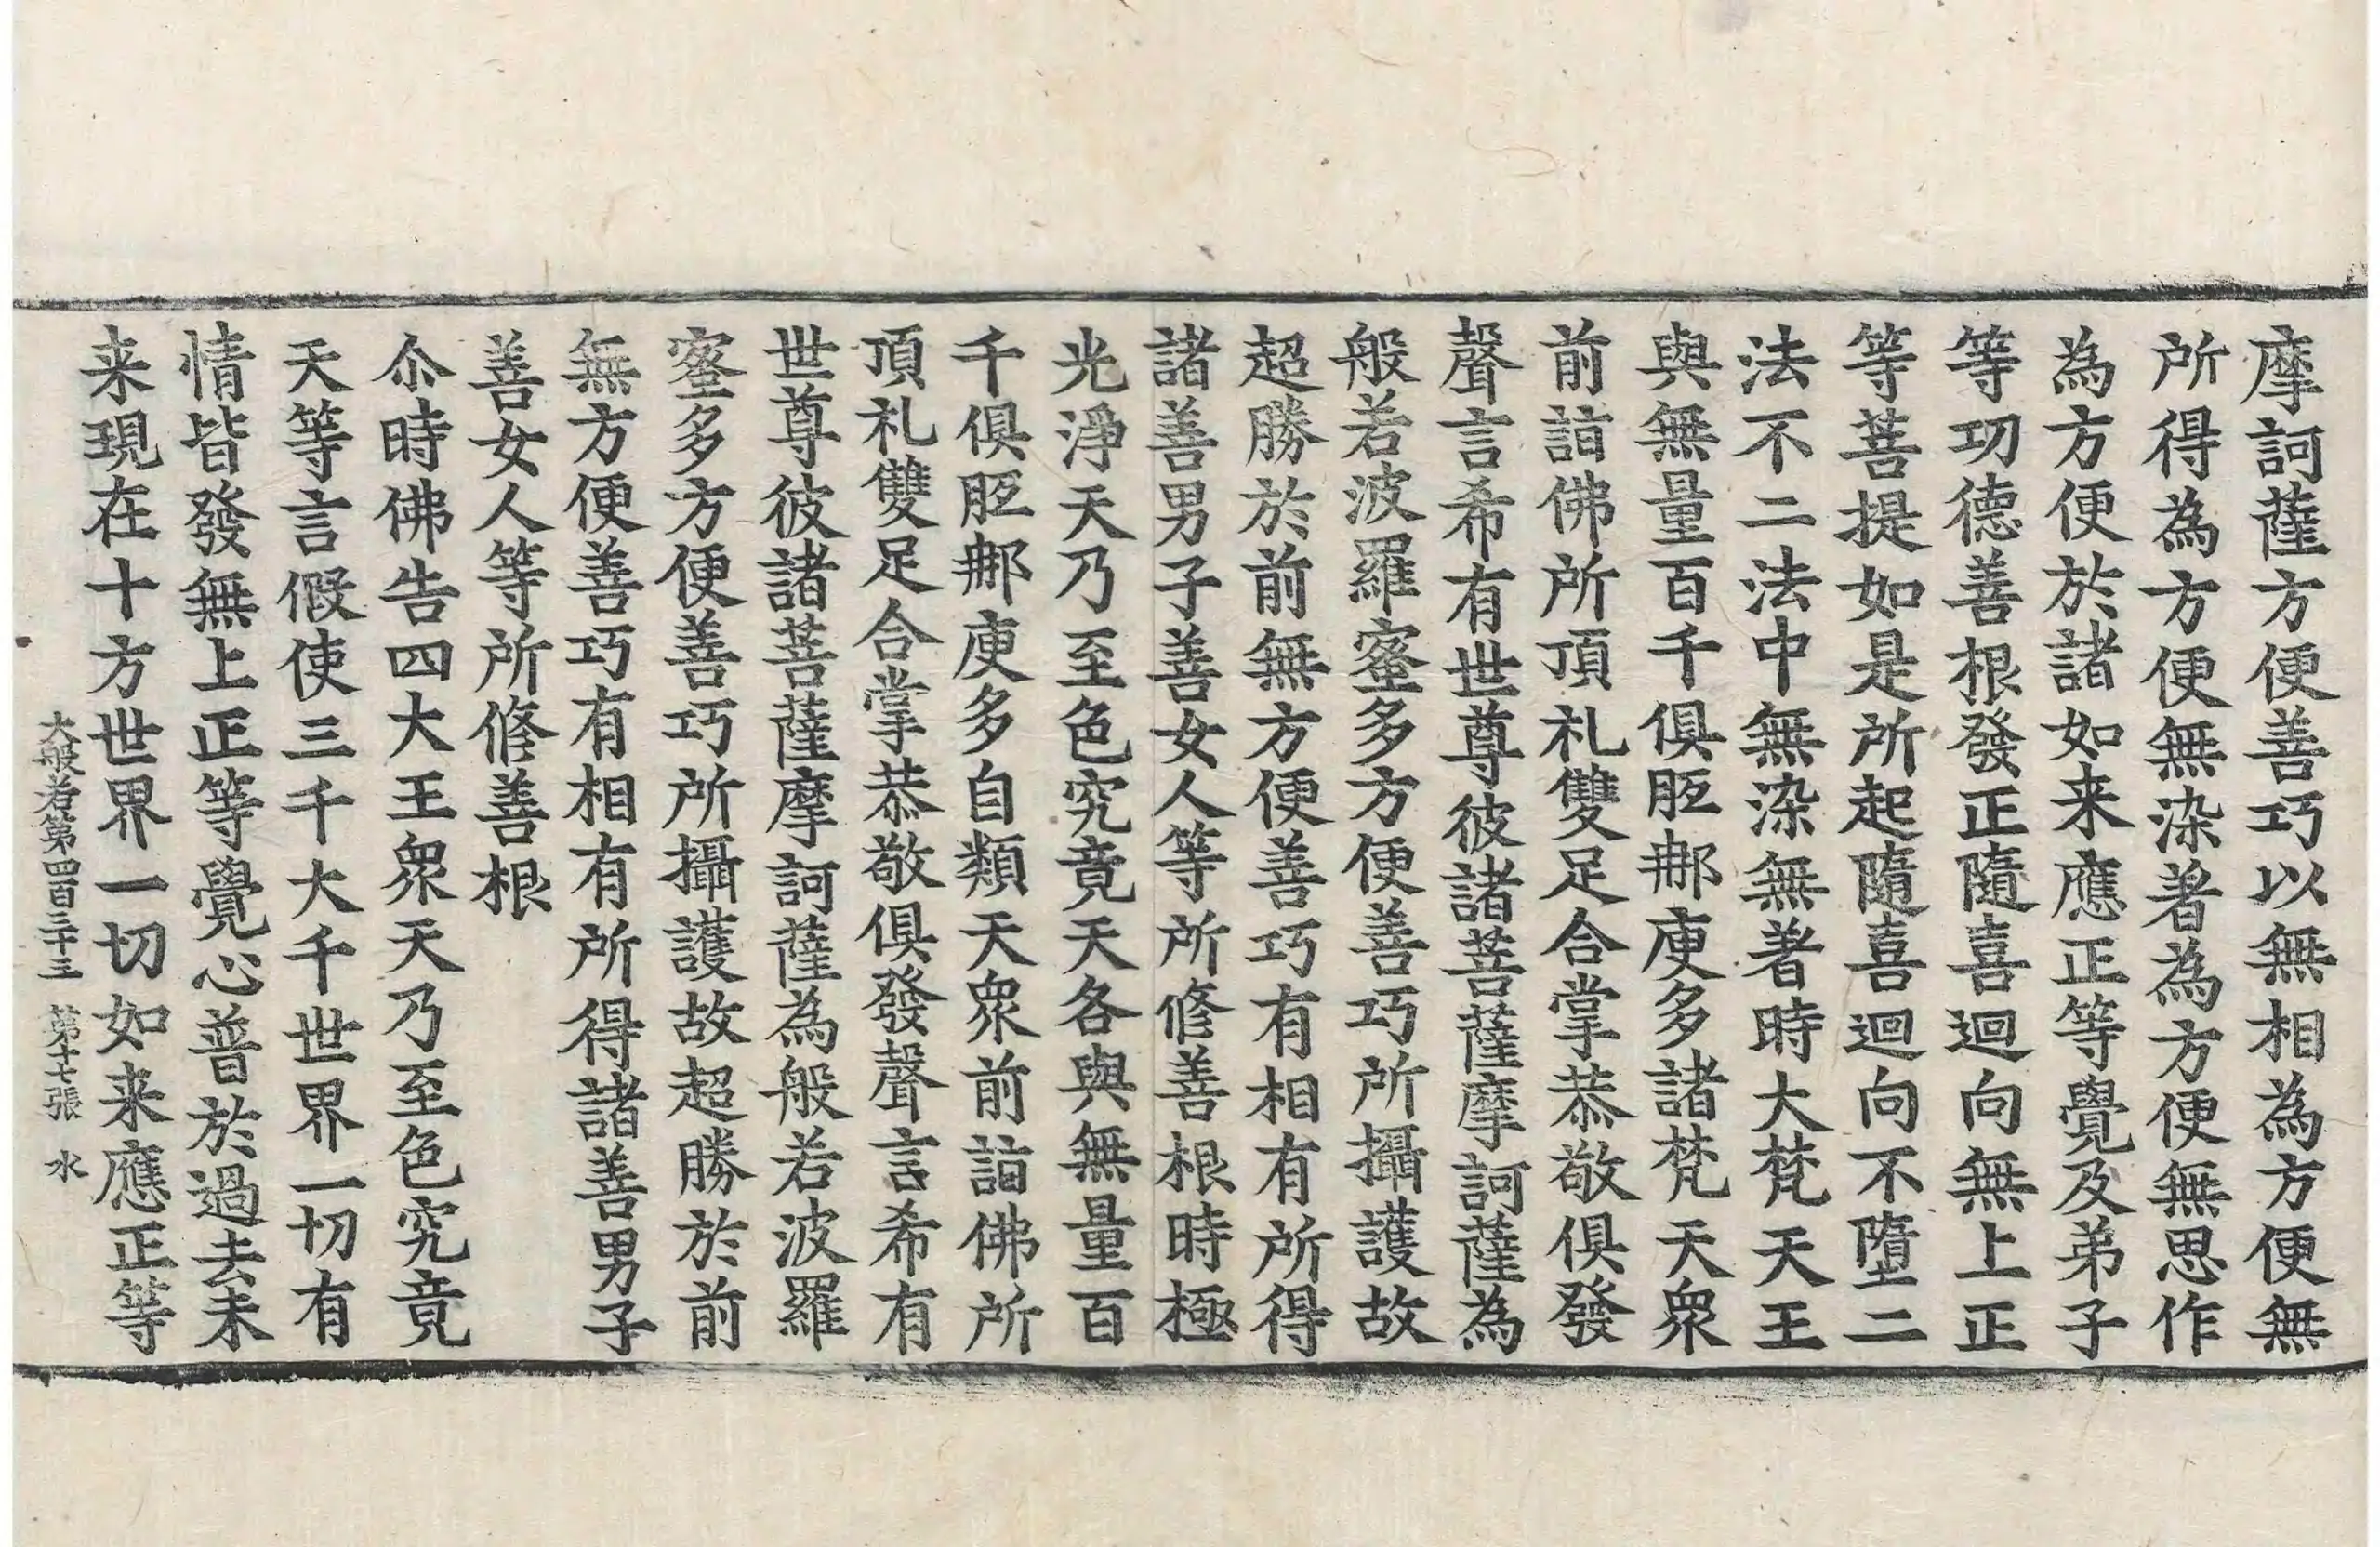 摩訶薩方便善巧以無相為方便無
所得為方便無染著為方便無思作
為方便於諸如来應正等覺及弟子
等功德善根發正隨喜迴向無上正
等菩提如是所起隨喜迴向不墮二
法不二法中無染無著時大梵天王
與無量百千俱胝𨚗庾多諸梵天衆
前詣佛所頂礼雙足合掌恭敬俱發
聲言希有世尊彼諸菩薩摩訶薩為
般若波羅蜜多方便善巧所攝護故
超勝於前無方便善巧有相有所得
諸善男子善女人等所修善根時極
光淨天乃至色究竟天各與無量百
千俱胝𨚗庾多自類天衆前詣佛所
頂礼雙足合掌恭敬俱發聲言希有
世尊彼諸菩薩摩訶薩為般若波羅
蜜多方便善巧所攝護故超勝於前
無方便善巧有相有所得諸善男子
善女人等所修善根
尒時佛告四大王衆天乃至色究竟
天等言假使三千大千世界一切有
情皆發無上正等覺心普於過去未
来現在十方世界一切如来應正等
大般若第四百三十三 第十七張 水